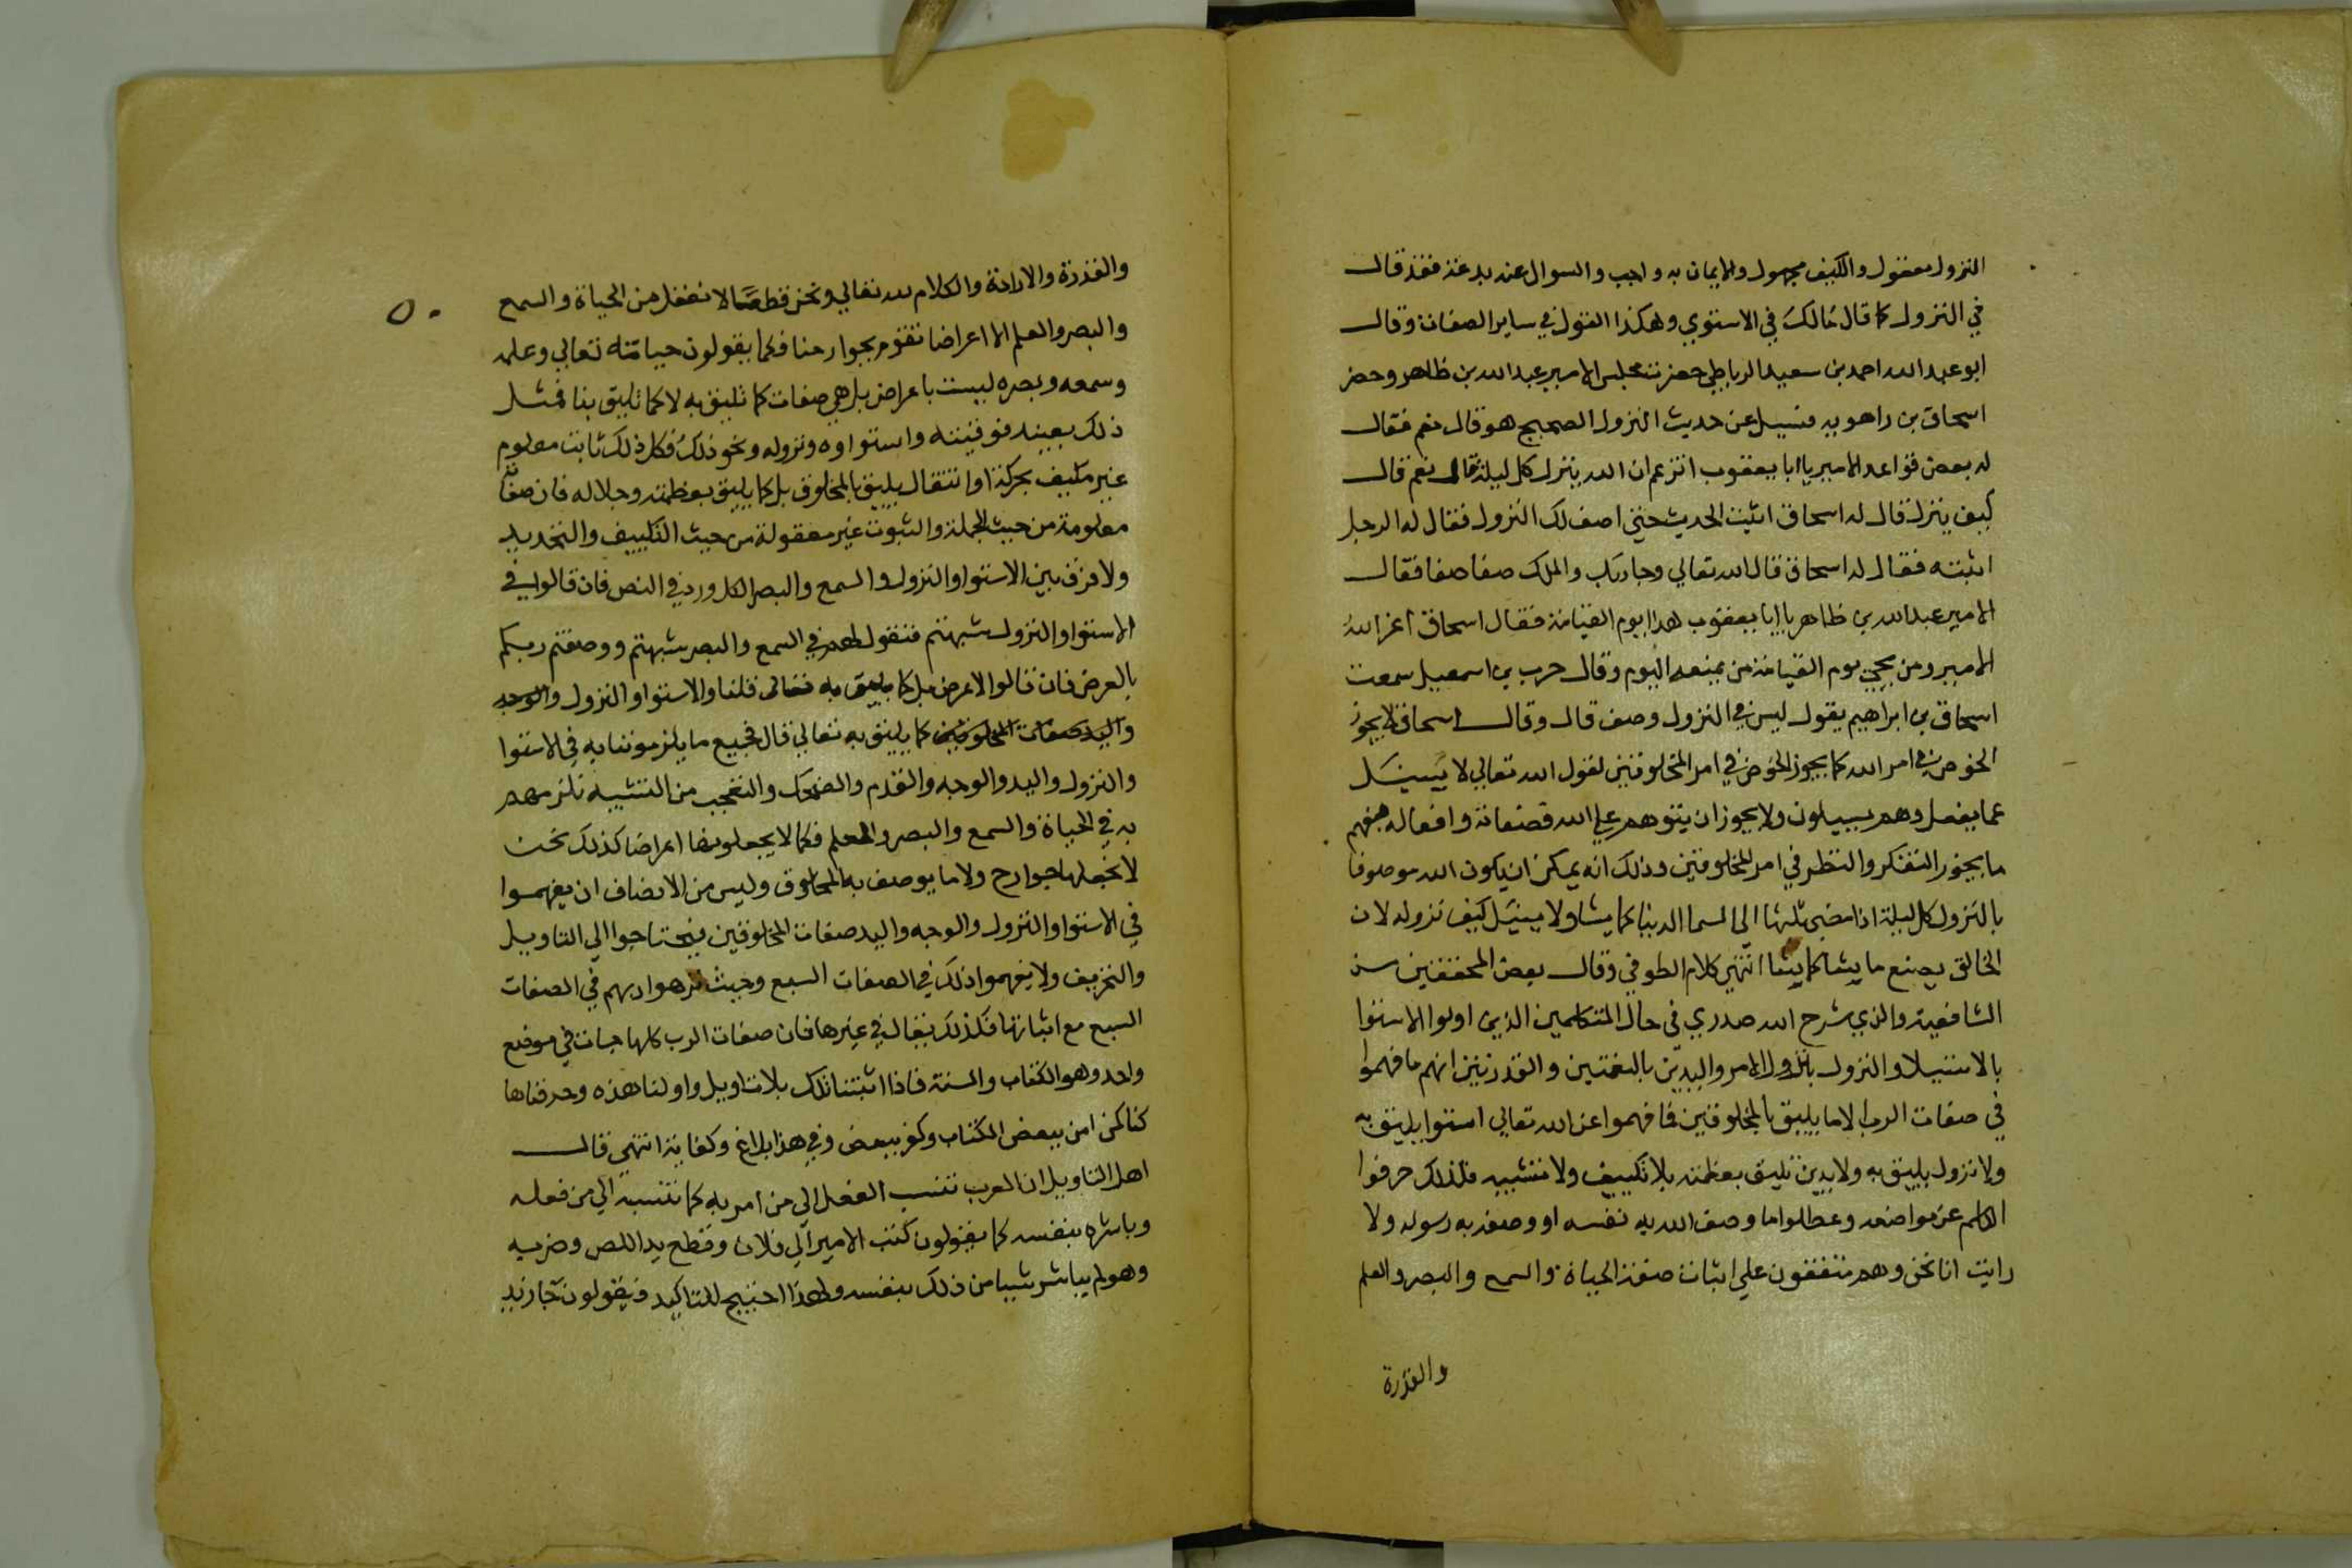 النزول معقول والكيف مجهول والايمان به واجب والسوال عنه بدعة فقد قال
في النزول كما قال مالك في الاستوي وهكذا القول في ساير الصفات وقال
ابو عبد الله احمد بن سعيد الرباطي حضرت مجلس الامير عبد الله بن طاهر وحضر
اسحاق بن راهويه فسيل عن حديث النزول الصحيح هو قال نعم فقال
له بعض قواعد الامير يا ابا يعقوب اتزعم ان الله ينزل كل ليلة قال نعم قال
كيف ينزل قال له اسحاق اثبت الحديث حتي اصف لك النزول فقال له الرجل
اثبته فقال له اسحاق قال الله تعالي وجا ربك والملك صفا صفا فقال
الامير عبد الله بن طاهر يا ابا يعقوب هذا يوم القيامة فقال اسحاق اعز الله
الامير ومن يجي يوم القيامة من يمنعه اليوم وقال حرب بن اسمعيل سمعت
اسحاق بن ابراهيم يقول ليس في النزول وصف قال وقال اسحاق لا يجوز
الخوض في امر الله كما يجوز الخوض في امر المخلوقين لقول الله تعالي لا يسيل
عما يفعل وهم يسيلون ولا يجوز ان يتوهم علي الله بصفاته وافعاله بفهم
ما يجوز التفكر والنظر في امر المخلوقين وذلك انه يمكن ان يكون الله موصوفا
بالنزول كل ليلة اذا مضي ثلثها الي السما الدنيا كما يشا ولا يسيل كيف نزوله لان
الخالق يصنع ما يشا كما يشا انتهي كلام الطوفي وقال بعض المحققين من
الشافعية والذي شرح الله صدري في حال المتكلمين الذين اولوا الاستوا
بالاستيلا والنزول بنزول الامر واليدين بالنعمتين والقدرتين انهم ما فهموا
في صفات الرب الا ما يليق بالمخلوقين فما فهموا عن الله تعالي استوا يليق به
ولا نزول يليق به ولا يدين تليق بعظمته بلا تكييف ولا تشبيه فلذلك حرفوا
الكلم عن مواضعه وعطلوا ما وصف الله به نفسه او وصفه به رسوله ولا
رايت انا نحن وهم متفقون علي اثبات صفة الحياة والسمع والبصر والعلم
والقدرة
٥٠
والقدرة والارادة والكلام لله تعالي ونحن قطعا لا نعقل من الحياة والسمع
والبصر والعلم الا اعراضا تقوم بجوارحنا فكما يقولون حياته تعالي وعلمه
وسمعه وبصره ليست باعراض بل هي صفات كما تليق به لا كما تليق بنا فمثل
ذلك بعينه فوقيته واستواوه ونزوله ونحو ذلك فكل ذلك ثابت معلوم
غير مكيف بحركة او انتقال يليق بالمخلوق بل كما يليق بعظمته وجلاله فان صفاته
معلومة من حيث الجملة والثبوت غير معقولة من حيث التكييف والتحديد
ولا فرق بين الاستوا والنزول والسمع والبصر الكل ورد في النص فان قالوا في
الاستوا والنزول شبهتم فنقول لهم في السمع والبصر شبهتم ووصفتم ربكم
بالعرض فان قالوا لا عرض بل كما يليق به تعالي قلنا والاستوا والنزول والوجه
واليد صفات المخلوقين كما يليق به تعالي قال فجميع ما يلزموننا به في الاستوا
والنزول واليد والوجه والقدم والضحك والتعجب من التشبيه نلزمهم
به في الحياة والسمع والبصر والعلم فكما لا يجعلونها اعراضا كذلك نحن
لا نجعلها جوارح ولا ما يوصف به المخلوق وليس من الانصاف ان يفهموا
في الاستوا والنزول والوجه واليد صفات المخلوقين فيحتاجوا الي التاويل
والتحريف ولا يفهموا ذلك في الصفات السبع وحيث نزهوا ربهم في الصفات
السبع مع اثباتها فكذلك يقال في غيرها فان صفات الرب كلها جات في موضع
واحد وهو الكتاب والسنة فاذا اثبتنا تلك بلا تاويل واولنا هذه وحرفناها
كنا كمن امن ببعض الكتاب وكفر ببعض وفي هذا بلاغ وكفاية انتهي قال
اهل التاويل ان العرب تنسب الفعل الي من امر به كما تنسبه الي من فعله
وباشره بنفسه كما يقولون كتب الامير الي فلان وقطع يد اللص وضربه
وهو لم يباشر شيا من ذلك بنفسه ولهذا احتيج للتاكيد فيقولون جا زيد